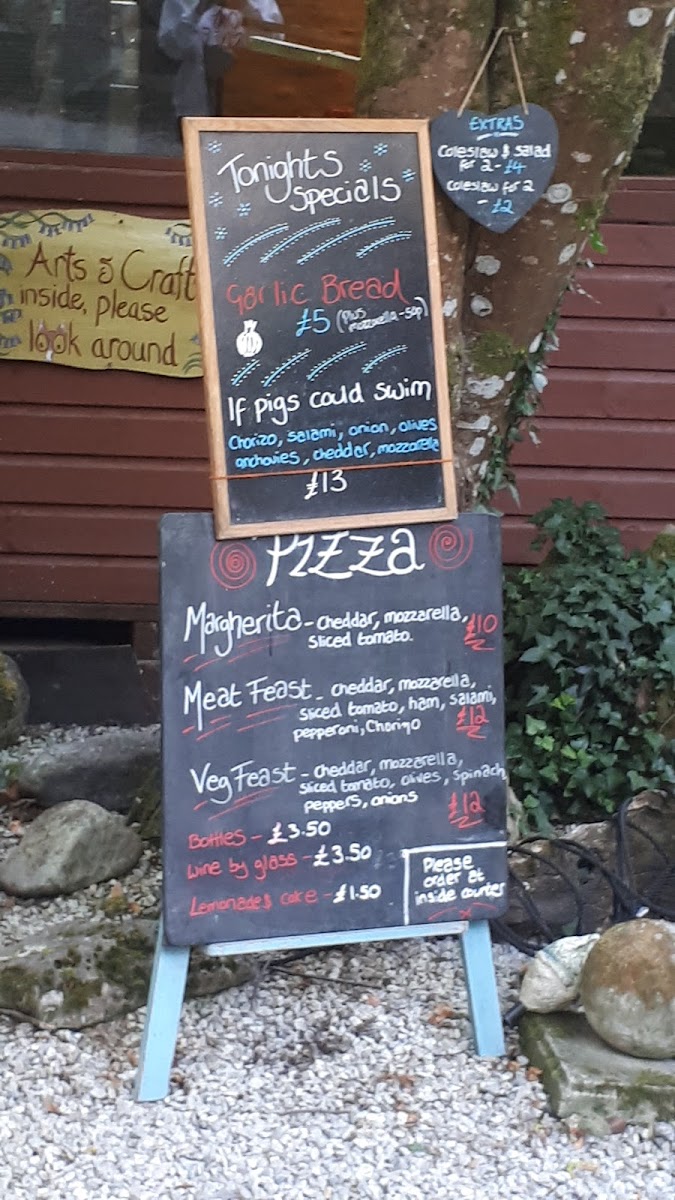 EXTRAS
Coleslaw & salad
for 2 - £4
Coleslaw for 2
- £2
Tonights
Specials
Garlic Bread
£5 (Plus
mozzarella - 50p)
If pigs could swim
Chorizo, salami, onion, olives
anchovies, cheddar, mozzarella
£13
Arts & Craft
inside, please
look around
Pizza
Margherita - cheddar, mozzarella, £10
sliced tomato.
Meat Feast - cheddar, mozzarella,
sliced tomato, ham, salami,
pepperoni, Chorizo £12
Veg Feast - cheddar, mozzarella,
sliced tomato, olives, spinach
peppers, onions £12
Bottles - £3.50
Wine by glass - £3.50
Lemonade & coke - £1.50
Please
order at
inside counter